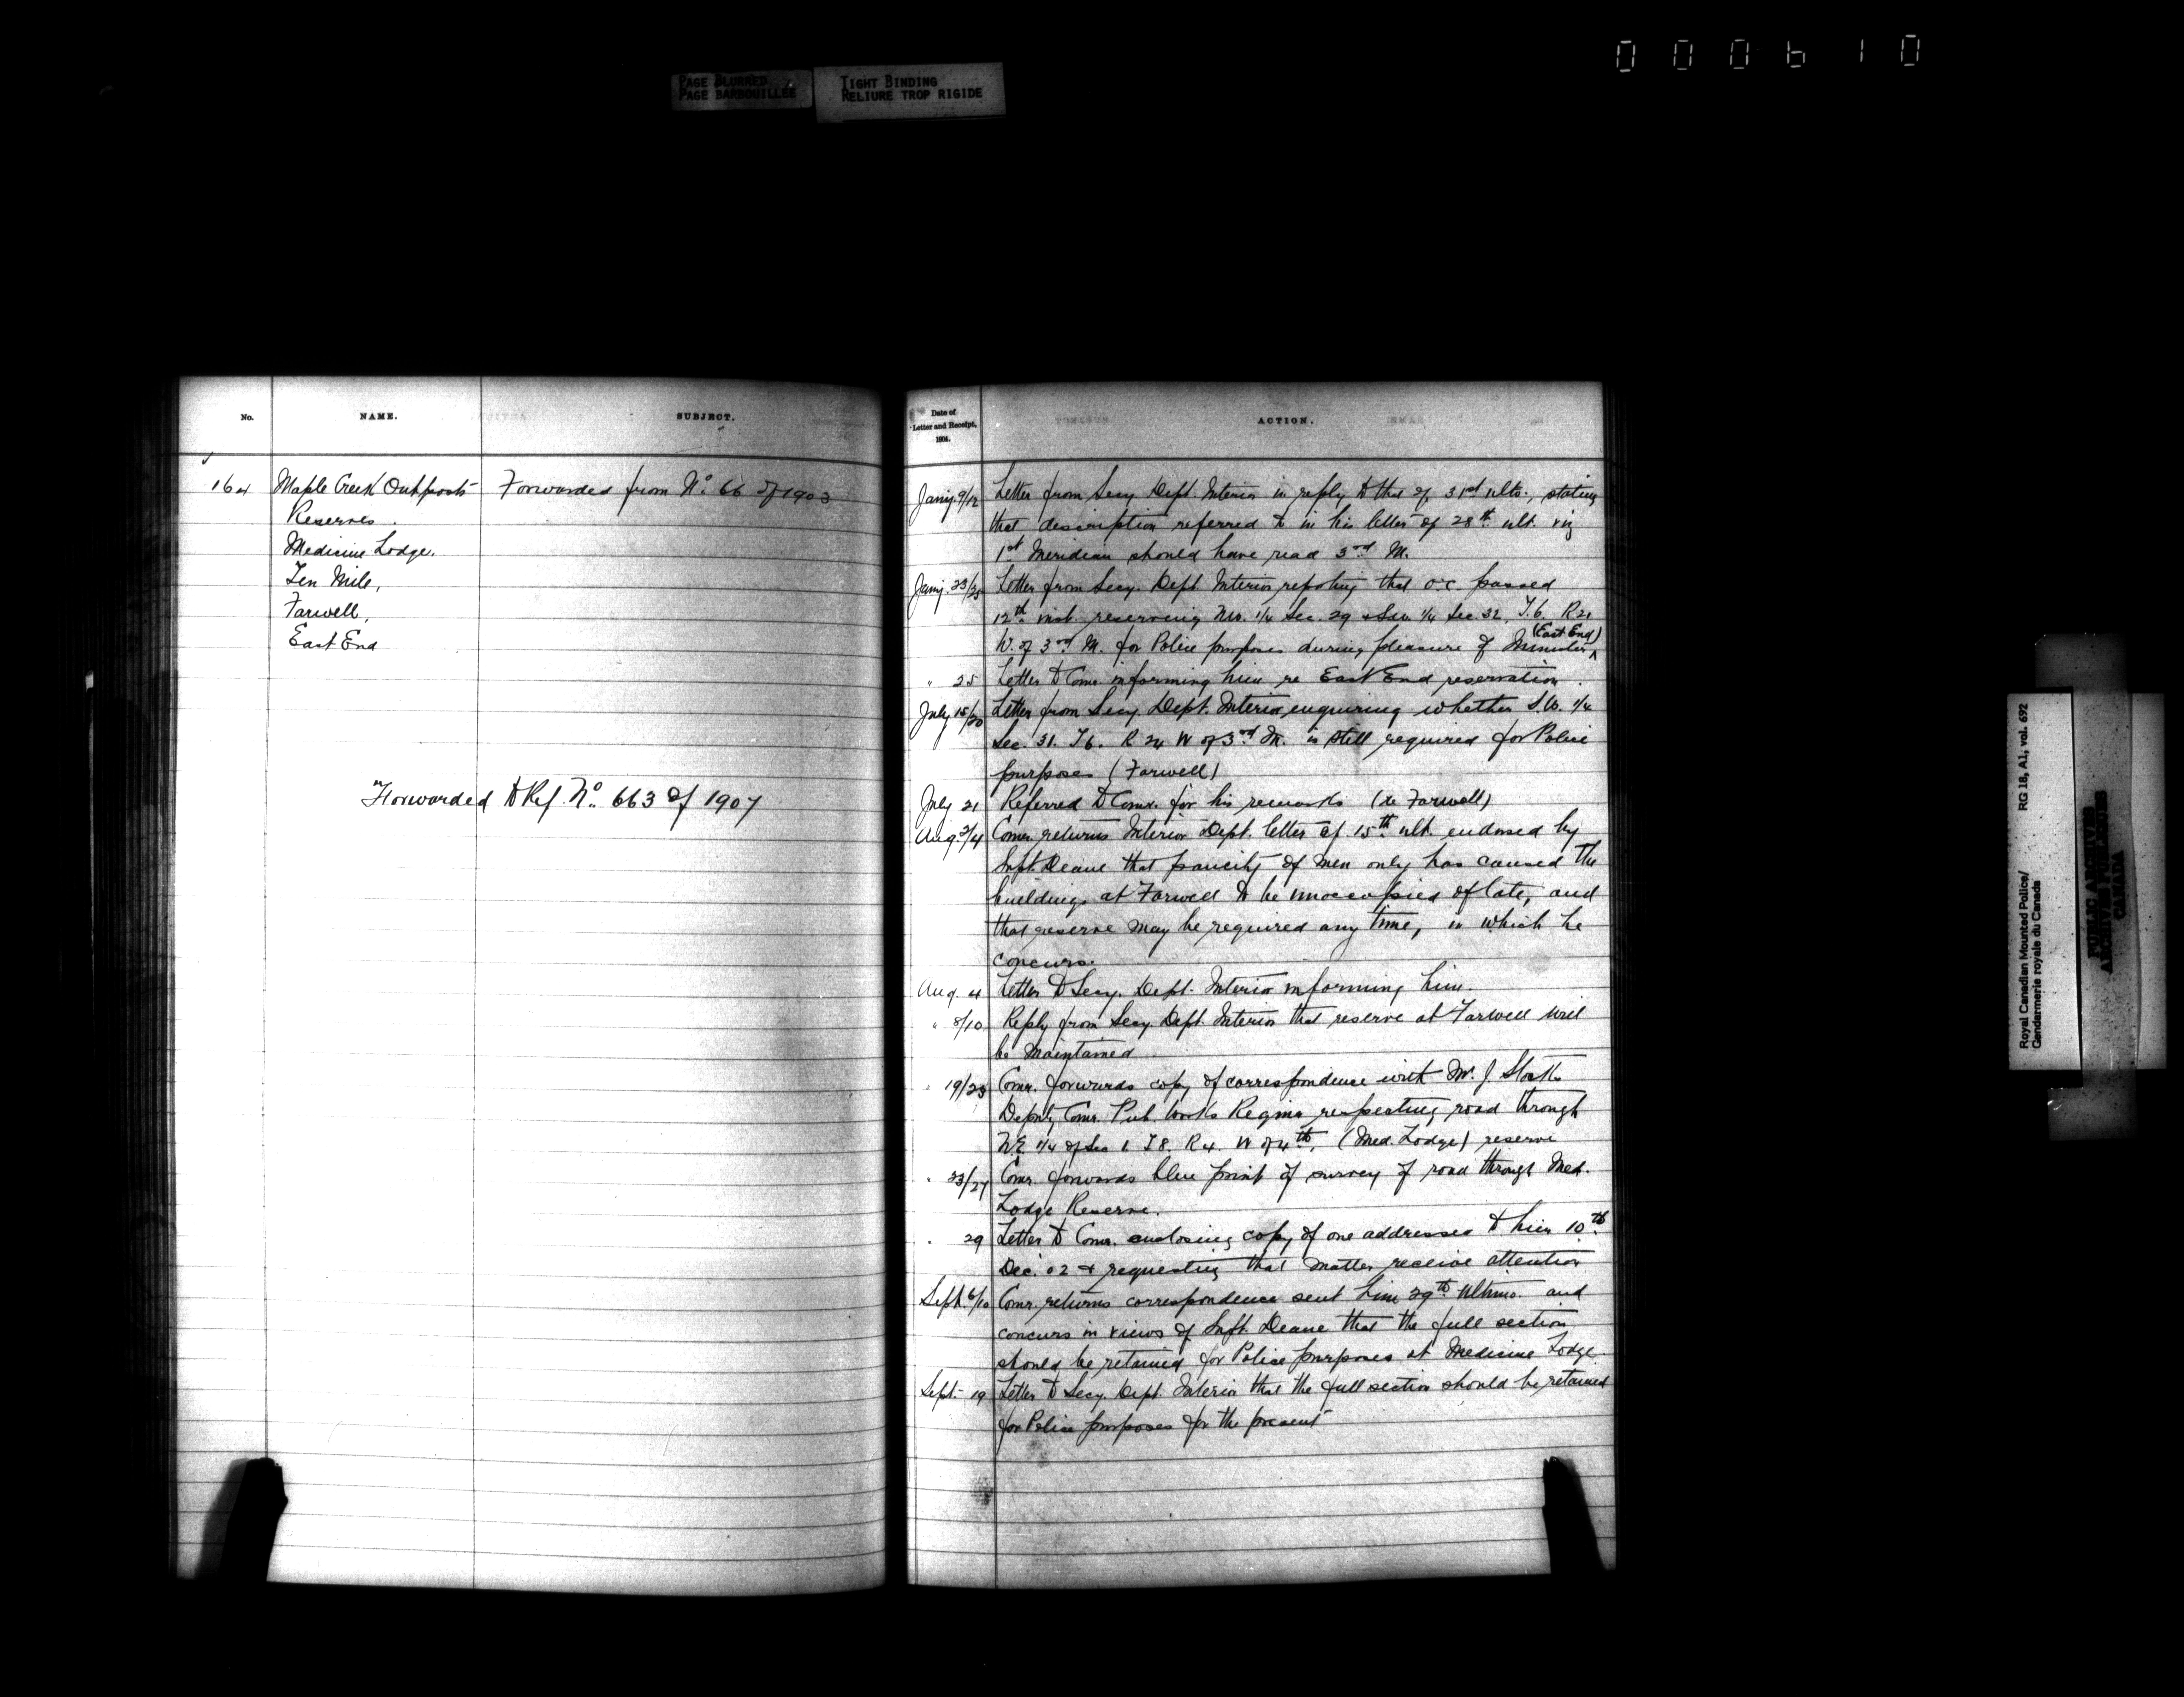 000610
PAGE BLURRED
PAGE BARBOUILLÉE
TIGHT BINDING
RELIURE TROP RIGIDE
No.
NAME.
SUBJECT.
164
Maple Creek Outposts
Forwarded from No. 66 of 1903
Reserves.
Medicine Lodge,
Ten Mile,
Farwell,
East End
Forwarded to Ref. No. 663 of 1907
Date of
Letter and Receipt,
1904.
ACTION.
Jany. 9/12 Letter from Secy. Dept. Interior in reply to that of 31st ulto., stating
that description referred to in his letter of 28th ult. viz
1st Meridian should have read 3rd M.
Jany. 23/25 Letter from Secy. Dept. Interior reporting that O.C. passed
12th inst. reserving NW. 1/4 Sec. 29 & SW. 1/4 Sec 32, T.6. R21
W. of 3rd M. for Police purposes during pleasure of Minister (East End)
" 25 Letter to Comr. informing him re East End reservation.
July 15/20 Letter from Secy. Dept. Interior enquiring whether S.W. 1/4
Sec. 31. T6. R 24 W of 3rd M. is still required for Police
purposes (Farwell)
July 21 Referred to Comr. for his remarks (re Farwell)
Aug. 2/4 Comr. returns Interior Dept. letter of 15th ult. endorsed by
Supt. Deane that paucity of men only has caused the
buildings at Farwell to be unoccupied of late, and
that reserve may be required any time, in which he
concurs.
Aug. 4 Letter to Secy. Dept. Interior informing him.
" 8/10 Reply from Secy. Dept. Interior that reserve at Farwell will
be maintained
" 19/23 Comr. forwards copy of correspondence with Mr. J. Stocks
Deputy Comr. Pub. Works Regina respecting road through
N.E. 1/4 of Sec 1 T8. R4. W of 4th, (Med. Lodge) reserve
" 23/27 Comr. forwards blue print of survey of road through Med.
Lodge Reserve.
" 29 Letter to Comr. enclosing copy of one addressed to him 10th
Dec. 02 & requesting that matter receive attention
Sept. 6/10 Comr. returns correspondence sent him 29th Ultimo. and
concurs in views of Supt. Deane that the full section
should be retained for Police purposes at Medicine Lodge.
Sept. 19 Letter to Secy. Dept. Interior that the full section should be retained
for Police purposes for the present
Royal Canadian Mounted Police/ RG 18, A1, vol. 692
Gendarmerie royale du Canada
PUBLIC ARCHIVES
ARCHIVES PUBLIQUES
CANADA